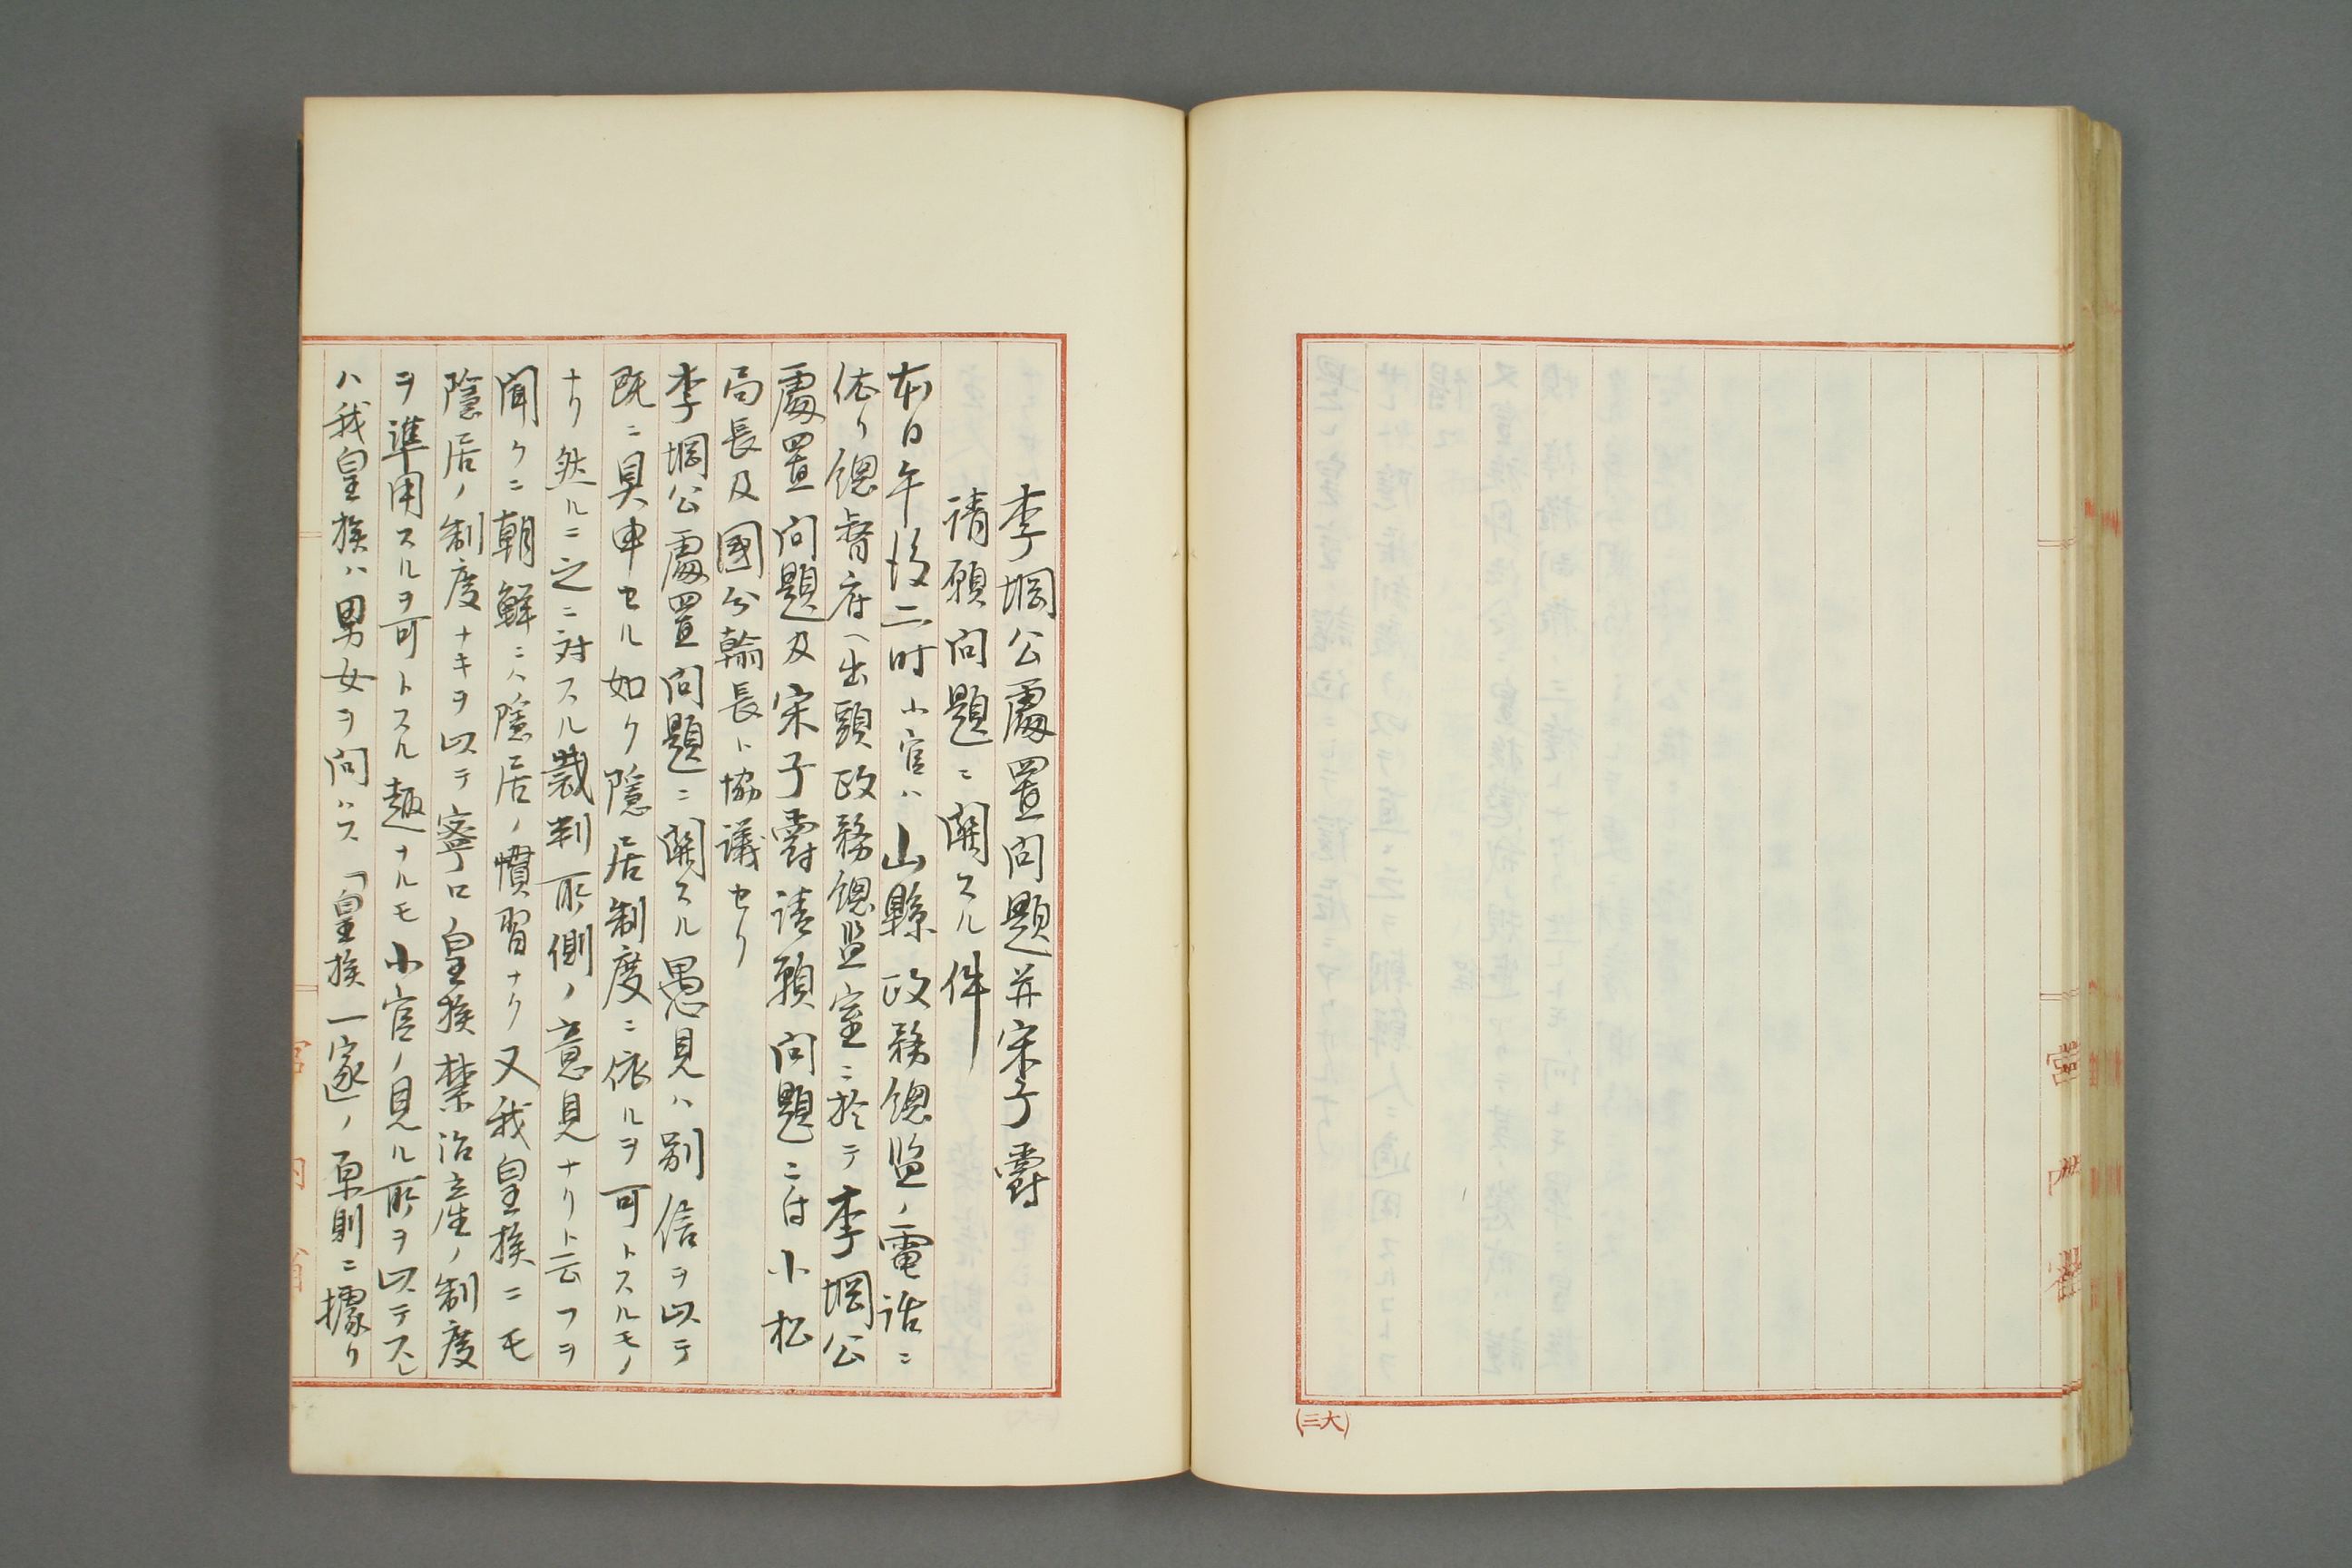 李堈公處置问題并宋子爵
请願问題ニ関スル件
本日午後二时小官ハ山縣政務總監ノ電話ニ
依り總督府へ出頭政務總監室ニ於テ李堈公
處置问題及宋子爵请願问題ニ付小松
局長及國分翰長ト協議セリ
李堈公處置问題ニ関スル愚見ハ別信ヲ以テ
既ニ具申セル如ク隠居制度ニ依ルヲ可トスルモノ
ナリ然ルニ之ニ対スル裁判所側ノ意見ナリト云フヲ
聞クニ朝鮮ニハ隠居ノ慣習ナク又我皇族ニモ
隠居ノ制度ナキヲ以テ寧ロ皇族禁治産ノ制度
ヲ準用スルヲ可トスル趣ナルモ小官ノ見ル所ヲ以テスレ
ハ我皇族ハ男女ヲ问ハス「皇族一家」ノ原則ニ據り
宮内省
(大三)